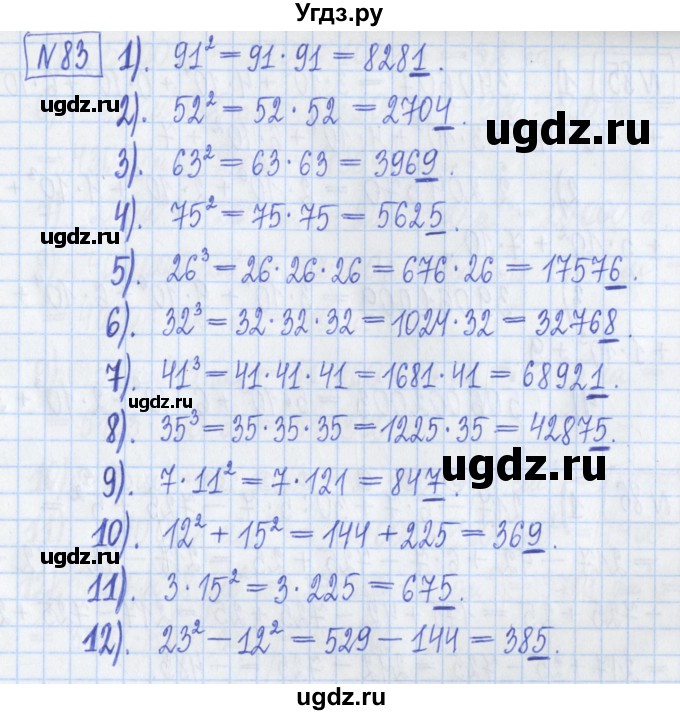 Угдз.ру
N 83 1). 91² = 91 · 91 = 8281.
ugdz.ru
2). 52² = 52 · 52 = 2704.
ugdz.ru
3). 63² = 63 · 63 = 3969.
4). 75² = 75 · 75 = 5625.
ugdz.ru
5). 26³ = 26 · 26 · 26 = 676 · 26 = 17576.
6). 32³ = 32 · 32 · 32 = 1024 · 32 = 32768.
7). 41³ = 41 · 41 · 41 = 1681 · 41 = 68921.
ugdz.ru
8). 35³ = 35 · 35 · 35 = 1225 · 35 = 42875.
ugdz.ru
9). 7 · 11² = 7 · 121 = 847.
10). 12² + 15² = 144 + 225 = 369.
ugdz.ru
11). 3 · 15² = 3 · 225 = 675.
12). 23² − 12² = 529 − 144 = 385.
ugdz.ru